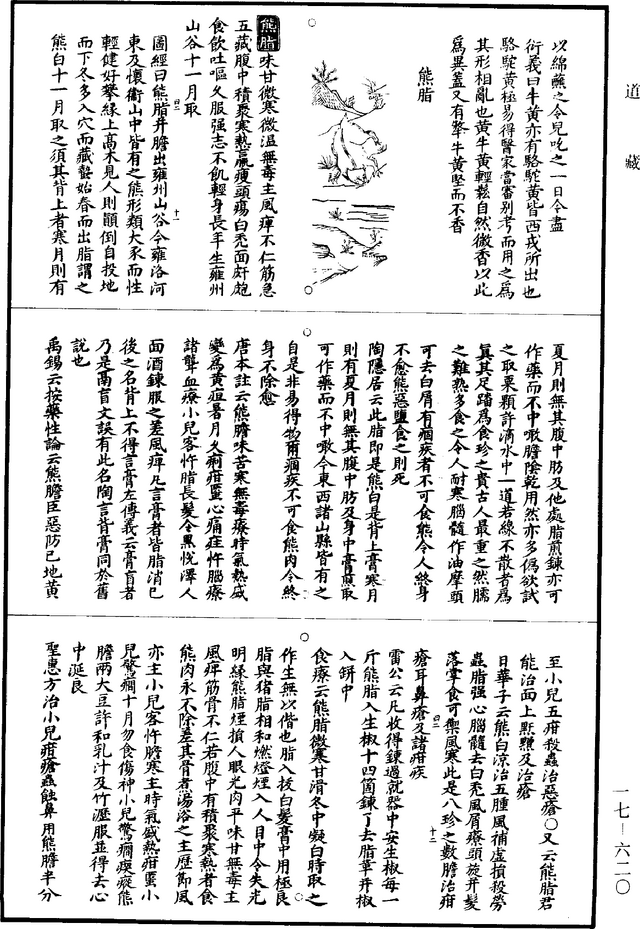 道藏
以綿蘸之令兒吃之一日令盡
衍義曰牛黃亦有駱駝黃皆西戎所出也
駱駝黃極易得醫家當審別考而用之爲
其形相亂也黃牛黃輕鬆自然微香以此
爲異蓋又有犛牛黃堅而不香
熊脂
熊脂味甘微寒微温無毒主風痺不仁筋急
五藏腹中積聚寒熱羸瘦頭瘍白禿面皯皰
食飲吐嘔久服强志不飢輕身長年生雍州
山谷十一月取
圖經曰熊脂并膽出雍州山谷今雍洛河
東及懷衞山中皆有之熊形類大豕而性
輕健好攀緣上高木見人則顛倒自投地
而下冬多入穴而藏蟄始春而出脂謂之
熊白十一月取之須其背上者寒月則有
夏月則無其腹中肪及他處脂煎鍊亦可
作藥而不中噉膽陰乾用然亦多僞欲試
之取粟顆許滴水中一道若線不散者爲
眞其足蹯爲食珍之貴古人最重之然臑
之難熟多食之令人耐寒腦髓作油摩頭
可去白屑有痼疾者不可食熊令人終身
不愈熊惡鹽食之則死
陶隱居云此脂即是熊白是背上膏寒月
則有夏月則無其腹中肪及身中膏煎取
可作藥而不中噉今東西諸山縣皆有之
自是非易得物爾痼疾不可食熊肉令終
身不除愈
唐本註云熊膽味苦寒無毒療時氣熱盛
變爲黃疸暑月久痢疳䘌心痛疰忤腦療
諸聾血療小兒客忤脂長髮令黑悅澤人
面酒鍊服之差風痺凡言膏者皆脂消已
後之名背上不得言膏左傳義云膏肓者
乃是鬲肓文誤有此名陶言背膏同於舊
説也
禹錫云按藥性論云熊膽臣惡防已地黃
至小兒五疳殺蟲治惡瘡○又云熊脂君
能治面上䵟䵳及治瘡
日華子云熊白涼治五腫風補虛損殺勞
蟲脂强心腦髓去白禿風屑療頭旋并髮
落掌食可禦風寒此是八珍之數膽治疳
瘡耳鼻瘡及諸疳疾
雷公云凡收得鍊過就器中安生椒每一
斤熊脂入生椒十四箇鍊了去脂革并椒
入缾中
食療云熊脂微寒甘滑冬中凝白時取之
作生無以偕也脂入拔白髮膏中用極良
脂與猪脂相和燃燈煙入人目中令失光
明緣熊脂煙損人眼光肉平味甘無毒主
風痺筋骨不仁若腹中有積聚寒熱者食
熊肉永不除差其骨煮湯浴之主歷節風
亦主小兒客忤膽寒主時氣盛熱疳䘌小
兒驚癇十月勿食傷神小兒驚癇瘈瘲熊
膽兩大豆許和乳汁及竹瀝服並得去心
中涎良
聖惠方治小兒疳瘡蟲蝕鼻用熊膽半分
一七—六二〇